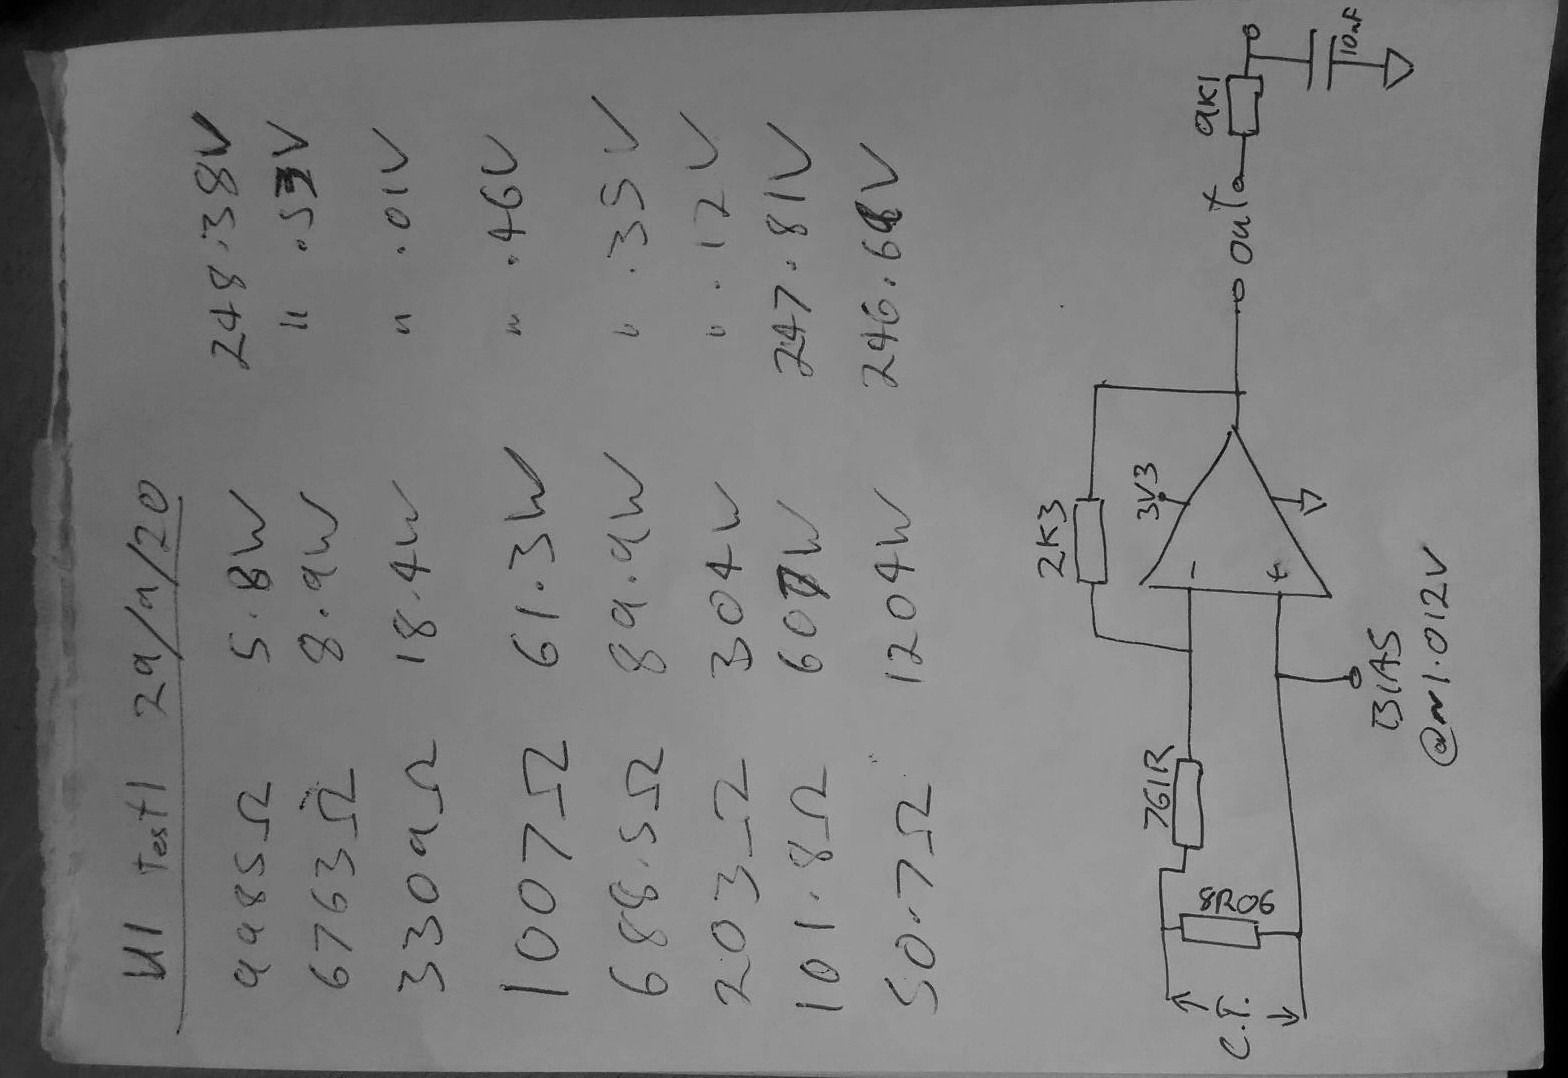 U1 Test1 29/9/20
9985Ω 5.8W 248.38V
6763Ω 8.9W " .53V
3309Ω 18.4W " .01V
1007Ω 61.3W " .46V
688.5Ω 89.9W " .35V
203Ω 304W " .12V
101.8Ω 607W 247.81V
50.7Ω 1204W 246.61V
2K3
761R
3V3
-
C.T.
+
out
9K1
10nF
BIAS
@~1.012V